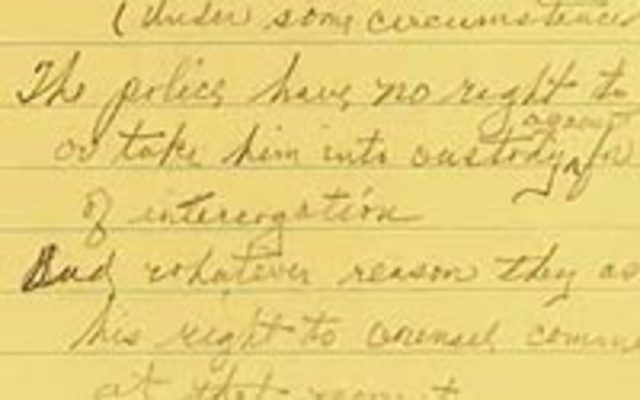 (Under some circumstances
The police have no right to
against
or take him into custody for
of interrogation
And whatever reason they
his right to counsel
at that